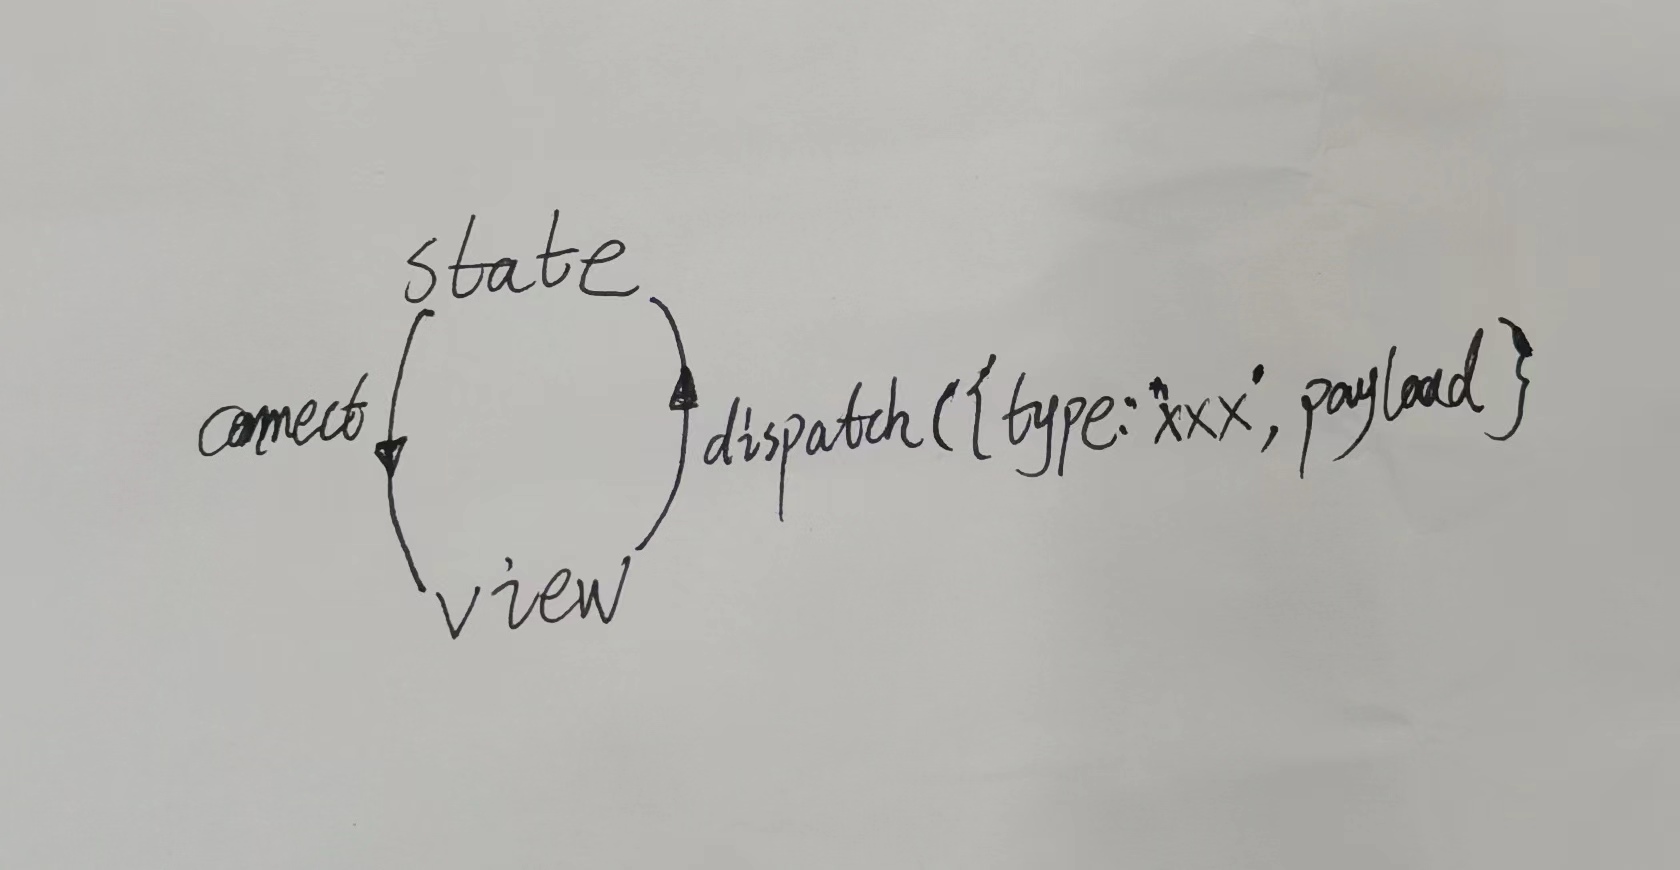 state
connect
dispatch({type:"xxx", payload}
view